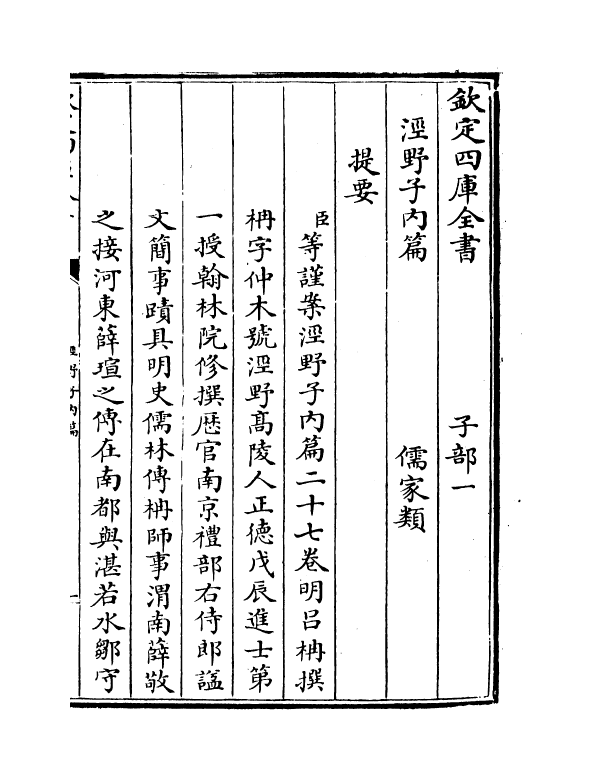 欽定四庫全書　子部一
涇野子內篇　儒家類
提要
臣等謹案涇野子內篇二十七卷明呂柟撰
柟字仲木號涇野髙陵人正德戊辰進士第
一授翰林院修撰歴官南京禮部右侍郎諡
文簡事蹟具明史儒林傳柟師事渭南薛敬
之接河東薛瑄之傳在南都與湛若水鄒守
涇野子內篇